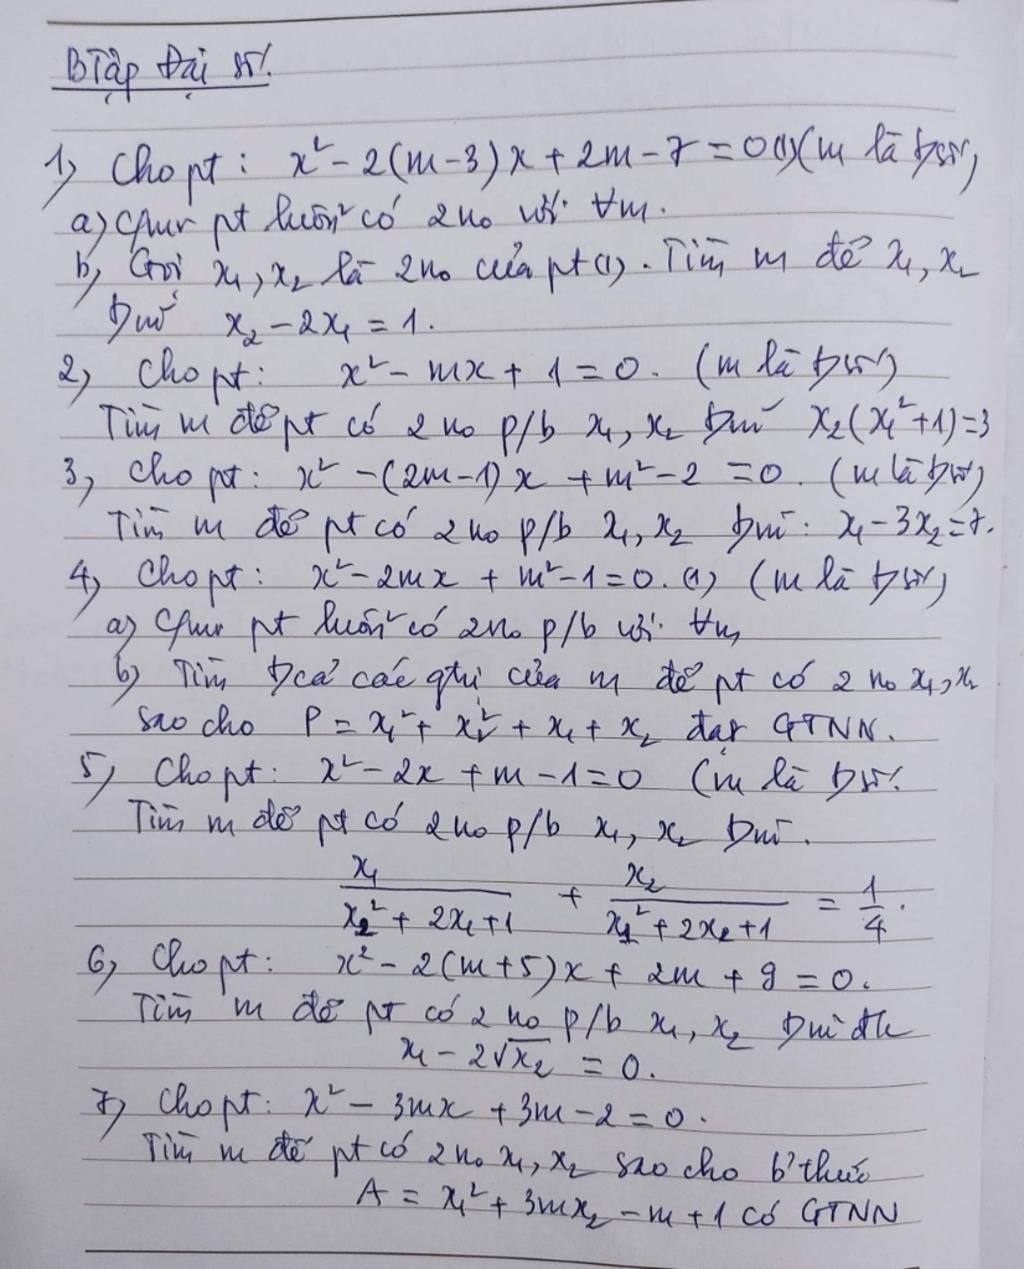 BTập Đại số.
1, Cho pt: x² - 2(m-3)x + 2m - 7 = 0 (1) (m là tsố)
a) Cmr pt luôn có 2 no với ∀m.
b, Gọi x₁, x₂ là 2 no của pt (1). Tìm m để x₁, x₂
x₂ - 2x₁ = 1.
2, Cho pt: x² - mx + 1 = 0. (m là tsố)
Tìm m để pt có 2 no p/b x₁, x₂ tm x₂(x₁² + 1) = 3
3, Cho pt: x² - (2m-1)x + m² - 2 = 0. (m là tsố)
Tìm m để pt có 2 no p/b x₁, x₂ tm: x₁ - 3x₂ = 7.
4, Cho pt: x² - 2mx + m² - 1 = 0. (1) (m là tsố)
a, Cmr pt luôn có 2 no p/b với ∀m
b, Tìm tcả các gtrị của m để pt có 2 no x₁, x₂
sao cho P = x₁² + x₂² + x₁ + x₂ đạt GTNN.
5, Cho pt: x² - 2x + m - 1 = 0 (m là tsố.
Tìm m để pt có 2 no p/b x₁, x₂ tm.
x₁/(x₂² + 2x₁ + 1) + x₂/(x₁² + 2x₂ + 1) = 1/4.
6, Cho pt: x² - 2(m+5)x + 2m + 9 = 0.
Tìm m để pt có 2 no p/b x₁, x₂ tm đk
x₁ - 2√x₂ = 0.
7, Cho pt: x² - 3mx + 3m - 2 = 0.
Tìm m để pt có 2 no x₁, x₂ sao cho b' thức
A = x₁² + 3mx₂ - m + 1 có GTNN